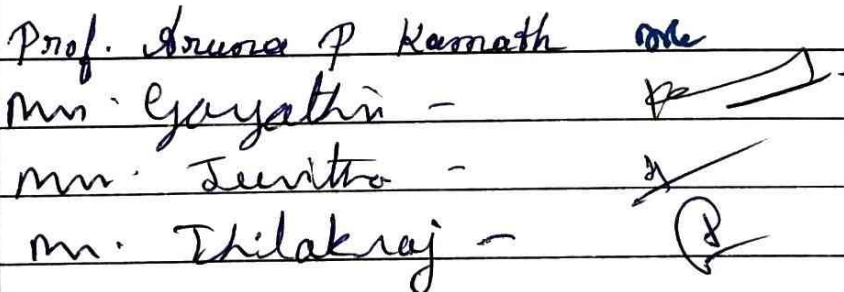 Prof. Aruna P Kamath
Mrs. Gayathri -
Mrs. Juvitha -
Mr. Thilakraj -